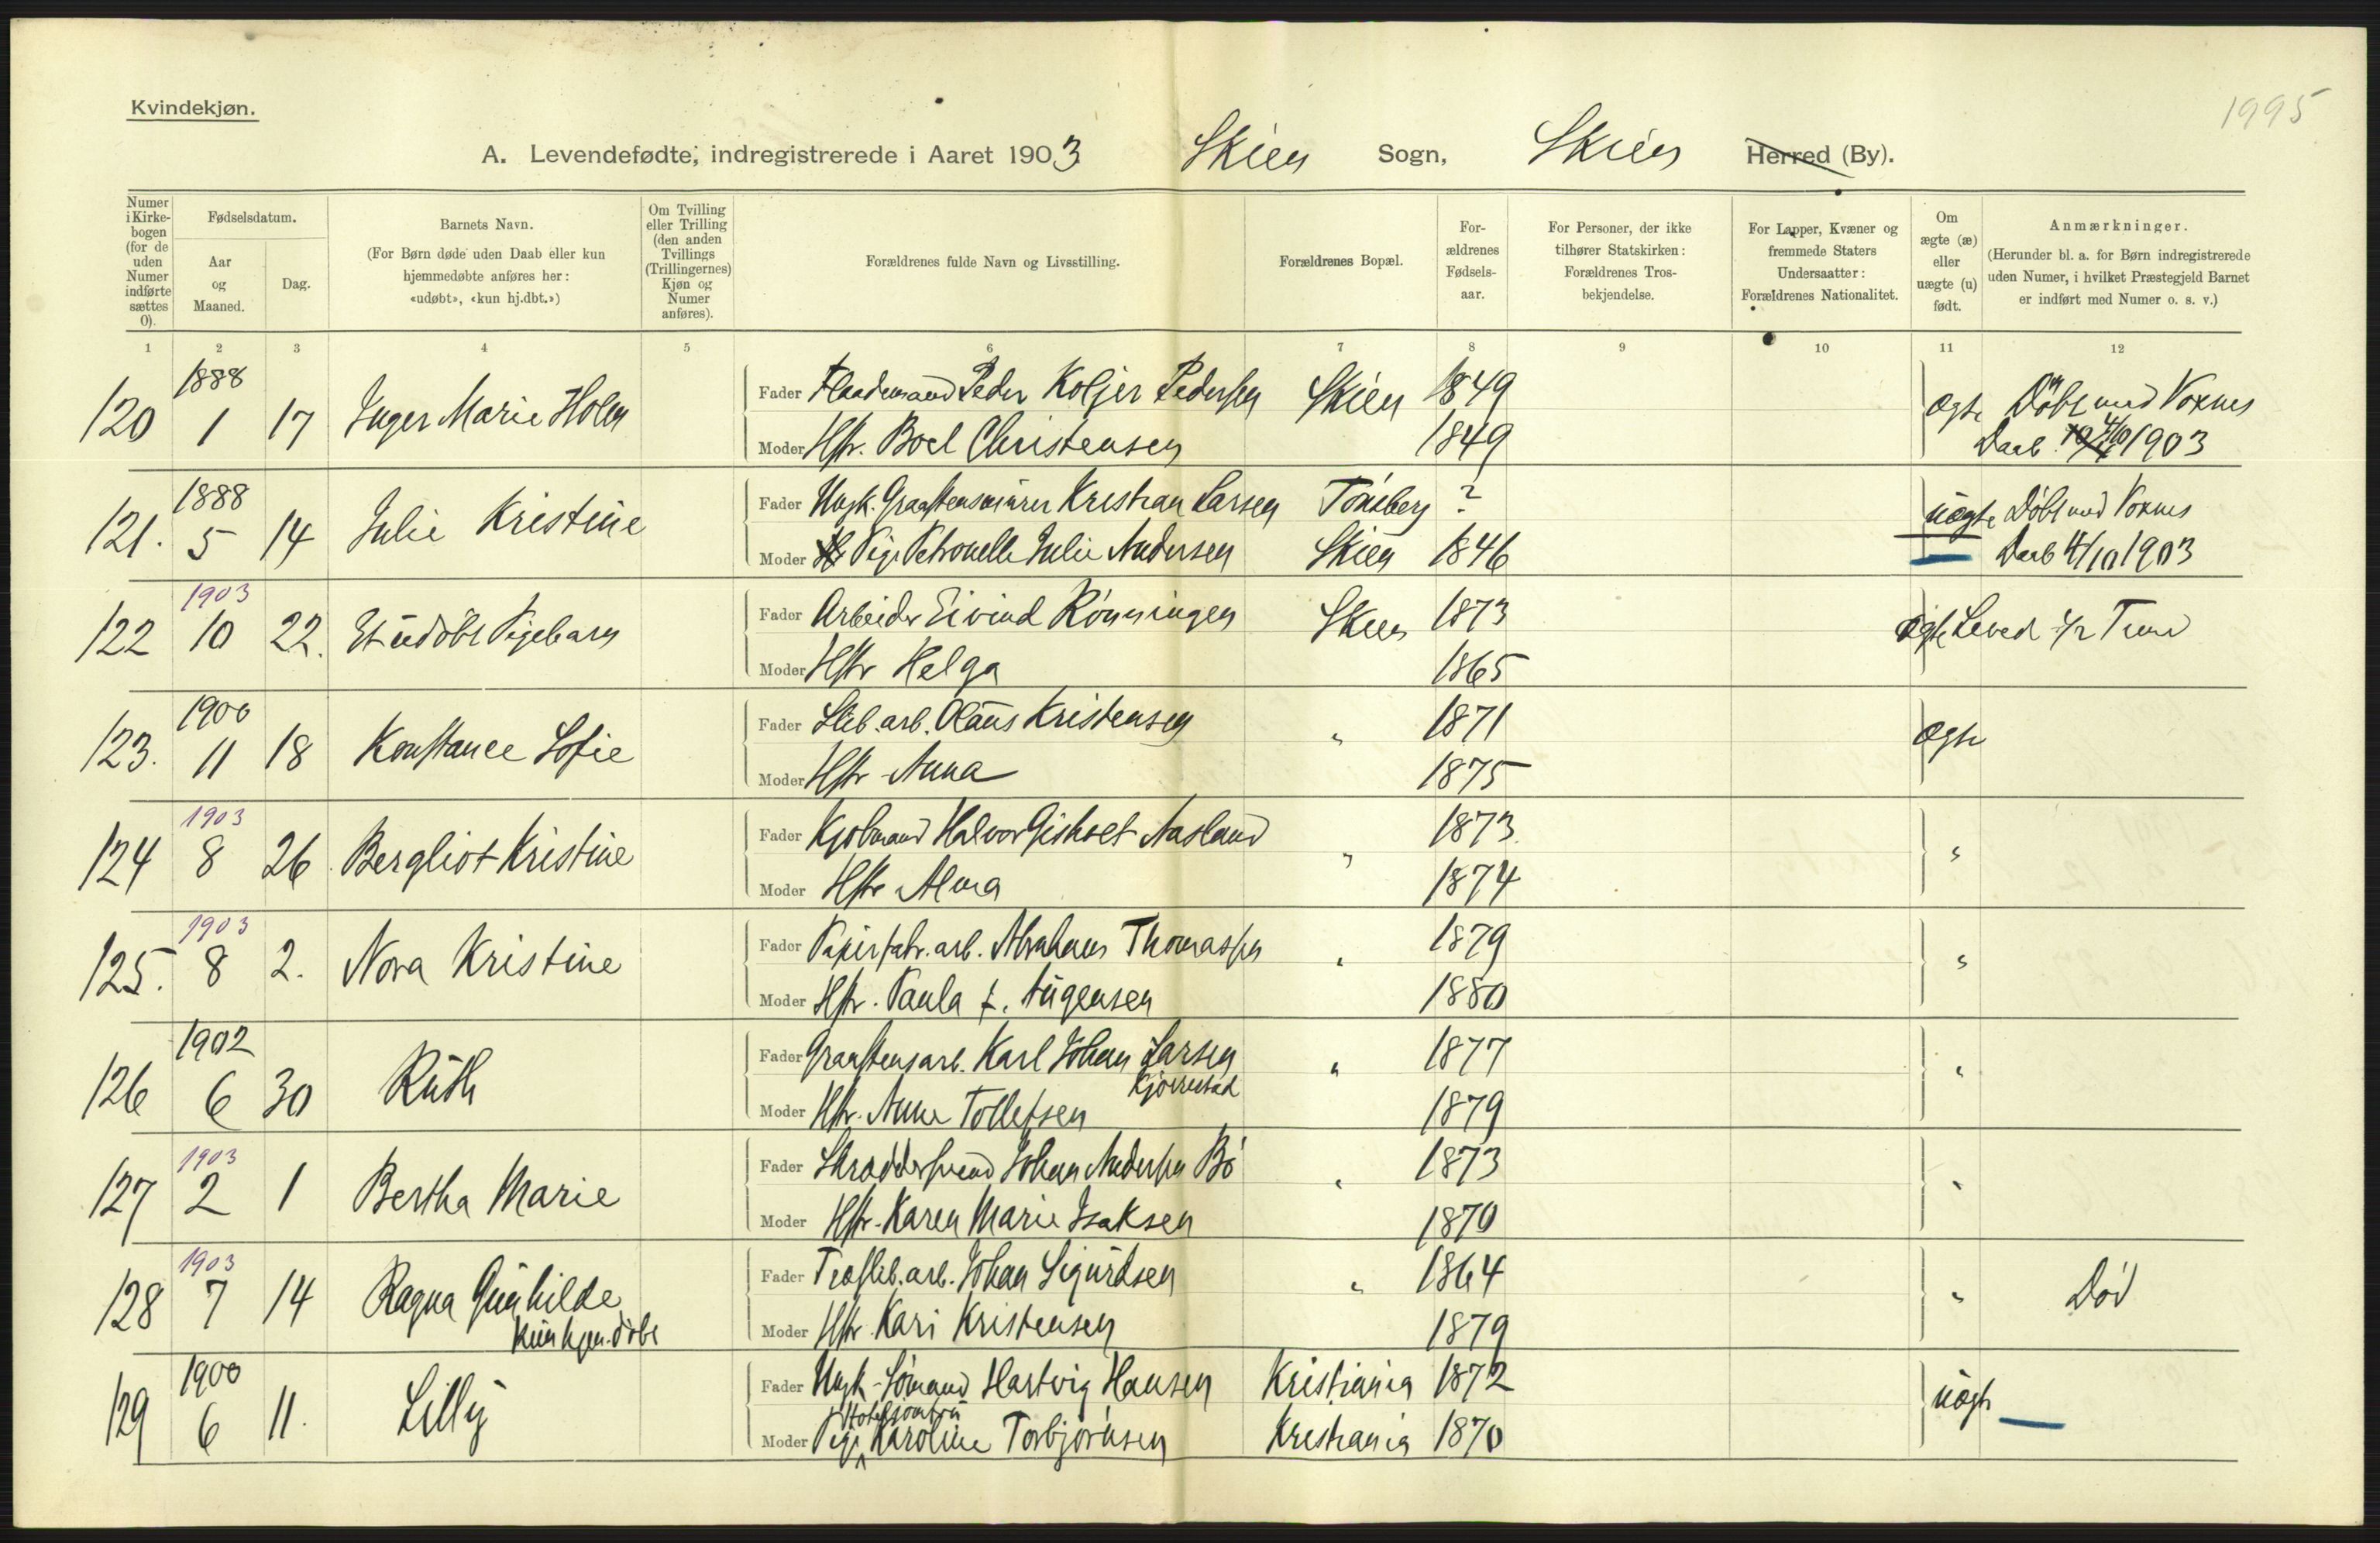 Kvindekjøn.
1995
A. Levendefødte, indregistrerede i Aaret 1903 Skien Sogn, Skien Herred (By).
Numer i Kirkebogen (for de uden Numer indførte sættes 0).
Fødselsdatum.
Aar og Maaned.
Dag.
Barnets Navn.
(For Børn døde uden Daab eller kun hjemmedøbte anføres her: «udøbt», «kun hj.dbt.»)
Om Tvilling eller Trilling (den anden Tvillings (Trillingernes) Kjøn og Numer anføres).
Forældrenes fulde Navn og Livsstilling.
Forældrenes Bopæl.
Forældrenes Fødselsaar.
For Personer, der ikke tilhører Statskirken: Forældrenes Trosbekjendelse.
For Lapper, Kvæner og fremmede Staters Undersaatter: Forældrenes Nationalitet.
Om ægte (æ) eller uægte (u) født.
Anmærkninger.
(Herunder bl. a. for Børn indregistrerede uden Numer, i hvilket Præstegjeld Barnet er indført med Numer o. s. v.)
1 2 3 4 5 6 7 8 9 10 11 12
120 1888 1 17 Inger Marie Holm
Fader Peder Koljer Pedersen Skien 1849 Ægte Døbt med Voxnes
Moder Hstr. Boel Christensen 1849 Daab 4/10 1903
121. 1888 5 14 Julie Kristine
Fader Ungk. Graastensminerer Kristian Larsen Tönsberg ? uægte Døbt med Voxnes
Moder Pige Petronelle Julie Andersen Skien 1846 Daab 4/10 1903
122 1903 10 22. Et udöbt Pigebarn
Fader Arbeider Eivind Rönningen Skien 1873 Ægte Leved 1/2 Time
Moder Hstr Helga 1865
123. 1900 11 18 Konstance Sofie
Fader Sleb. arb. Olaus Kristensen " 1871 Ægte
Moder Hstr Anna 1875
124 1903 8 26 Bergliot Kristine
Fader Kjøbmand Halvor Gisholt Aasland " 1873 "
Moder Hstr Alma 1874
125. 1903 8 2. Nora Kristine
Fader Papirfabr. arb. Abraham Thomassen " 1879 "
Moder Hstr. Paula f. Aügensen 1880
126 1902 6 30 Ruth
Fader Graastensarb. Karl Johan Larsen " 1877 "
Kjörrestad
Moder Hstr. Anne Tollefsen 1879
127 1903 2 1 Bertha Marie
Fader Skræddersvend Johan Andersen Bö " 1873 "
Moder Hstr. Karen Marie Isaksen 1870
128 1903 7 14 Ragna Gunhilde
kun hjem.döbt
Fader Træsleb. arb. Johan Sigurdsen " 1864 " Död
Moder Hstr. Kari Kristensen 1879
129 1900 6 11. Lilly
Fader Ungk. Sömand Hartvig Hansen Kristiania 1872 uægte
Moder Pige Karoline Torbjörnsen Kristiania 1870